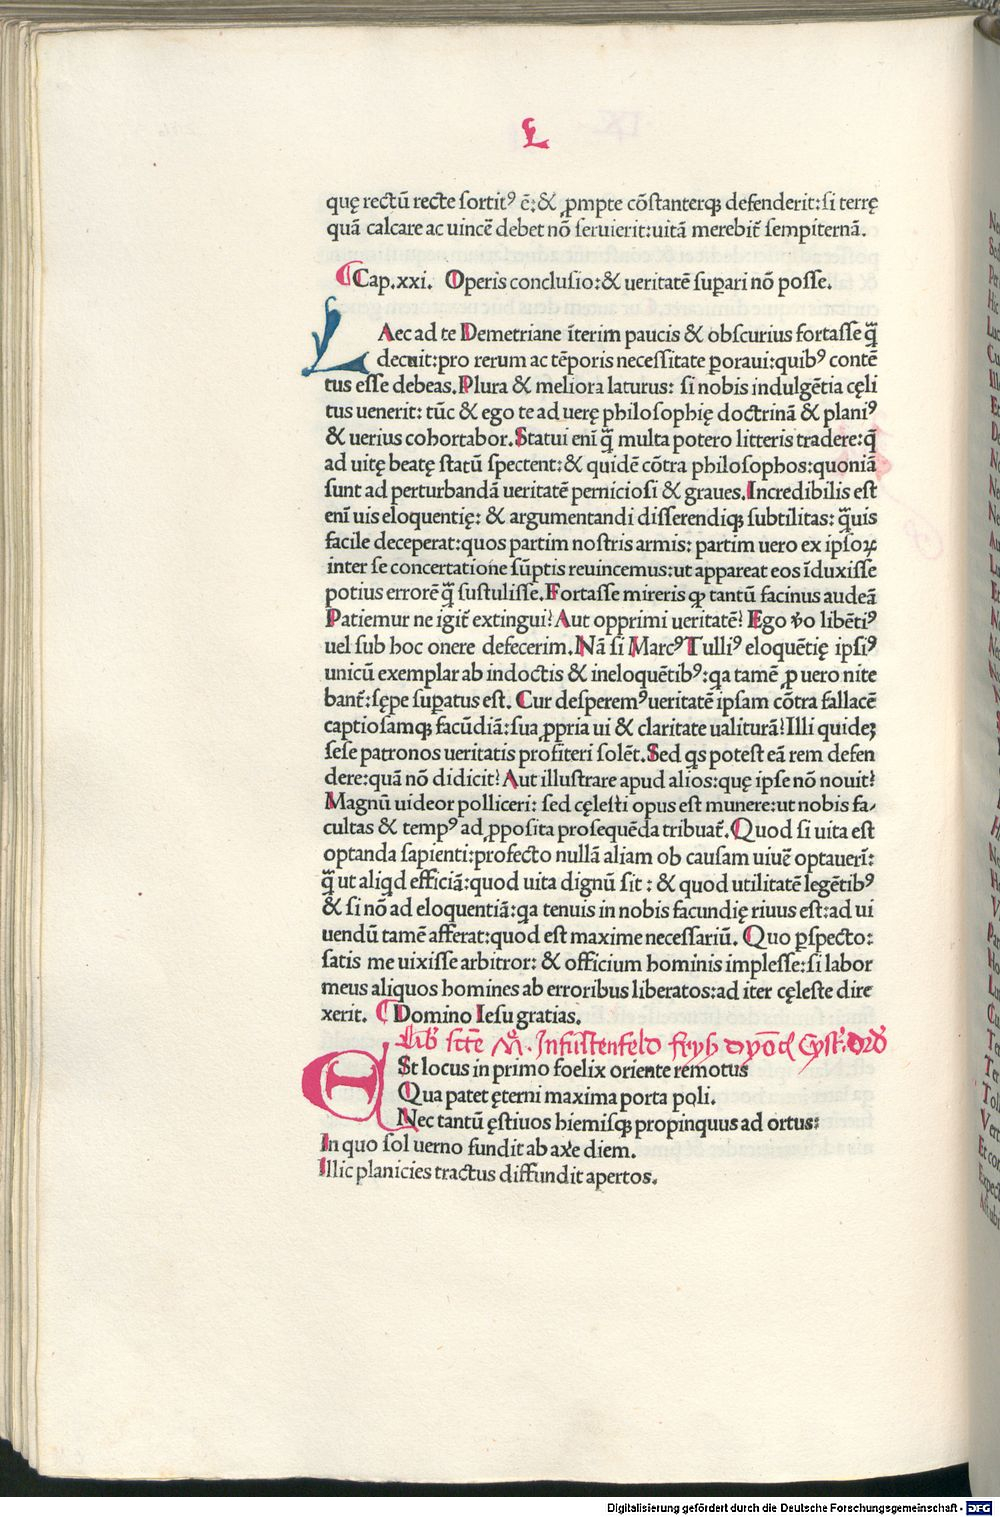 L
quę rectū recte sortitꝰ ē:& ꝓmpte cōstanterqꝫ defenderit:si terrę
quā calcare ac uincē debet nō seruierit:uitā merebit̃ sempiternā.
Cap.xxi. Operis conclusio:& ueritatē suꝑari nō posse.
LAec ad te Demetriane īterim paucis & obscurius fortasse q̃̃
decuit:pro rerum ac tēporis necessitate ꝑoraui:quibꝰ contē
tus esse debeas.Plura & meliora laturus: si nobis indulgētia cęli
tus uenerit: tūc & ego te ad uerę philosophię doctrinā & planiꝰ
& uerius cohortabor.Statui enī q̃ multa potero litteris tradere:q̄
ad uitę beatę statū spectent:& quidē cōtra philosophos:quoniā
sunt ad perturbandā ueritatē perniciosi & graues.Incredibilis est
enī uis eloquentię: & argumentandi disserendiqꝫ subtilitas: q̃uis
facile deceperat:quos partim nostris armis: partim uero ex ipsoꝝ
inter se concertatione sūptis reuincemus:ut appareat eos īduxisse
potius errorē q̃ sustulisse.Fortasse mireris ꝙ tantū facinus audeā
Patiemur ne igit̃ extingui?Aut opprimi ueritatē? Ego ỽo libētiꝰ
uel sub hoc onere defecerim.Nā si Marcꝰ Tulliꝰ eloquētię ipsiꝰ
unicū exemplar ab indoctis & ineloquētibꝰ:qa tamē ꝓ uero nite
bant̃:sępe suꝑatus est. Cur desperemꝰ ueritatē ipsam cōtra fallacē
captiosamqꝫ facūdiā:sua ꝓpria ui & claritate ualiturā?Illi quideꝫ
sese patronos ueritatis profiteri solēt.Sed qs potest eā rem defen
dere:quā nō didicit?Aut illustrare apud alios:quę ipse nō nouit?
Magnū uideor polliceri: sed cęlesti opus est munere:ut nobis fa⸗
cultas & tempꝰ ad ꝓposita prosequēda tribuat̃.Quod si uita est
optanda sapienti:profecto nullā aliam ob causam uiuē optauerī:
q̃ ut aliqd efficiā:quod uita dignū sit : & quod utilitatē legētibꝰ
& si nō ad eloquentiā:qa tenuis in nobis facundię riuus est:ad ui
uendū tamē afferat:quod est maxime necessariū. Quo ꝑspecto:
satis me uixisse arbitror: & officium hominis implesse:si labor
meus aliquos homines ab erroribus liberatos:ad iter cęleste dire
xerit. Domino Iesu gratias.
Lib̕ scte M. Infustenfeld freyß dyoc̄ Cyst̕. Ord̕
ESt locus in primo foelix oriente remotus
Qua patet ęterni maxima porta poli.
Nec tantū ęstiuos hiemisqꝫ propinquus ad ortus:
In quo sol uerno fundit ab axe diem.
Illic planicies tractus diffundit apertos.
Digitalisierung gefördert durch die Deutsche Forschungsgemeinschaft - DFG